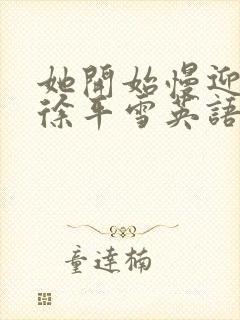 她開始慢迎
徐平雪英語
童達楠